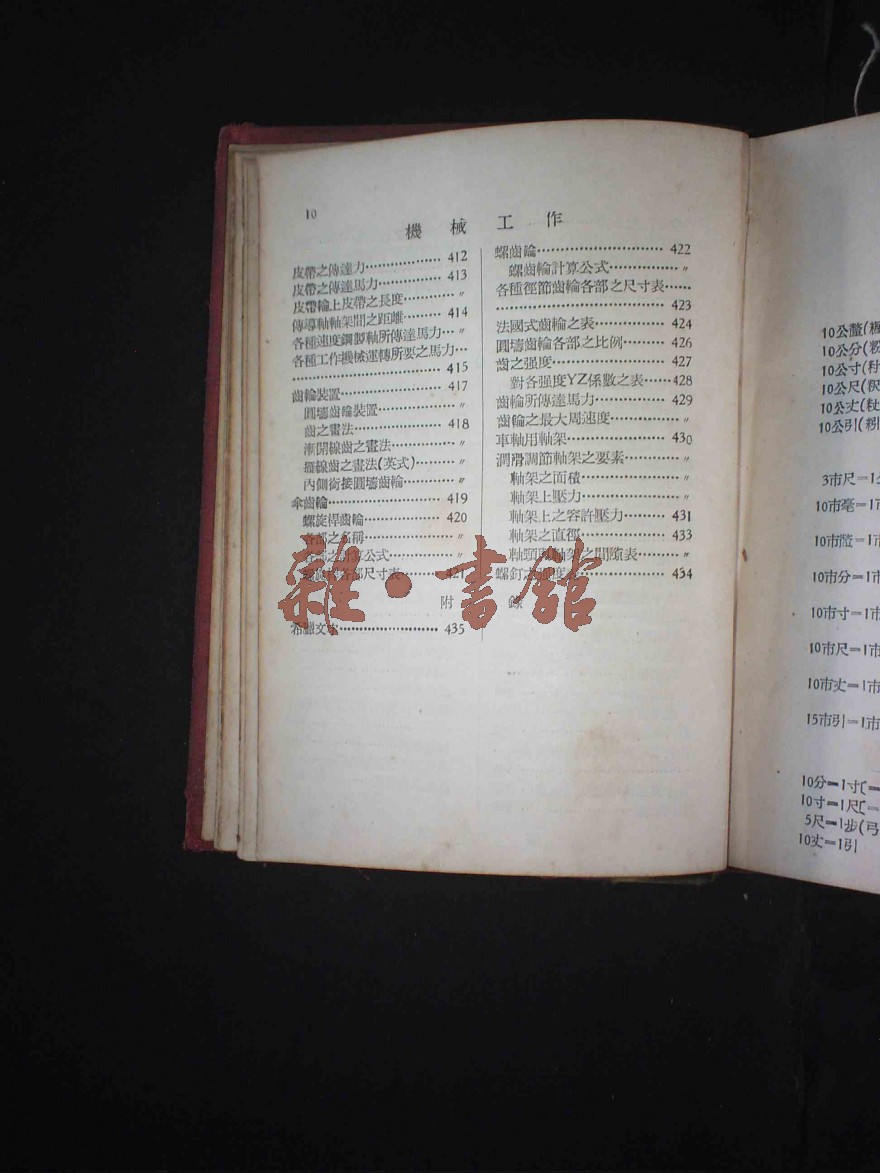 10
機械工作
皮帶之傳達力………………… 412
皮帶之傳達馬力……………… 413
皮帶輪上皮帶之長度………… 〃
傳導軸軸架間之距離………… 414
各種速度鋼製軸所傳達馬力… 〃
各種工作機械運轉所要之馬力…
…………………………………… 415
齒輪裝置……………………… 417
圓壔齒輪裝置………………… 〃
齒之畫法……………………… 418
漸開線齒之畫法……………… 〃
擺線齒之畫法(英式)………… 〃
內側銜接圓壔齒輪…………… 〃
傘齒輪………………………… 419
螺旋桿齒輪…………………… 420
各部之名稱…………………… 〃
各部之計算公式……………… 〃
各部尺寸表……… 421
螺齒輪………………………… 422
螺齒輪計算公式……………… 〃
各種徑節齒輪各部之尺寸表……
…………………………………… 423
法國式齒輪之表……………… 424
圓壔齒輪各部之比例………… 426
齒之强度……………………… 427
對各强度YZ係數之表……… 428
齒輪所傳達馬力……………… 429
齒輪之最大周速度…………… 〃
車軸用軸架…………………… 430
潤滑調節軸架之要素………… 〃
軸架之面積…………………… 〃
軸架上壓力…………………… 〃
軸架上之容許壓力…………… 431
軸架之直徑…………………… 433
軸頸與軸架之間隙表………… 〃
螺釘之强度表………………… 434
附錄
希臘文字……………………… 435
雜·書館
10公釐(
10公分(
10公寸(
10公尺(
10公丈(
10公引(
3市尺=1
10市毫=1市
10市釐=1市
10市分=1市
10市寸=1市
10市尺=1市
10市丈=1市
15市引=1市
10分=1寸〔=
10寸=1尺〔=
5尺=1步(弓
10丈=1引